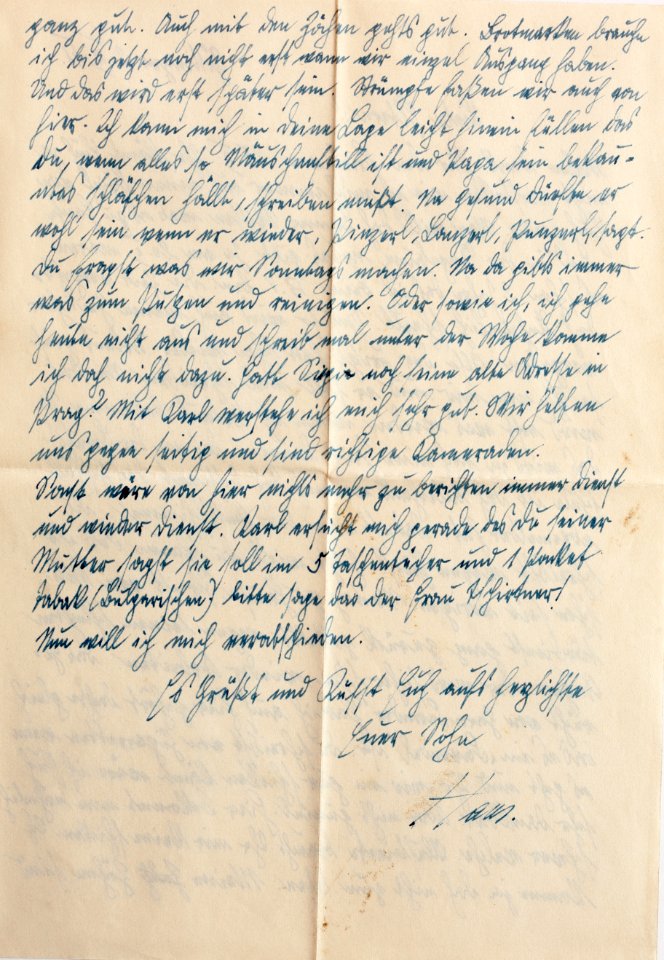 ganz gut. Auch mit den Zähen gehts gut. Brotmarken brauche
ich bis jetzt noch nicht erst wann wir einzel Ausgang haben.
Und das wird erst später sein. Strümpfe faßen wir auch von
hier. Ich kann mich in deine Lage leicht hinein füllen das
du, wenn alles so Mäuschenstill ist und Papa sein bekan-
ntes schläfchen hällt, schreiben mußt. Na gesund dürfte er
wohl sein wenn er wieder, Pinzerl, Lanzerl, Punzerl, sagt.
Du fragst was wir Sonntags machen. Na da gibts immer
was zum Putzen und reinigen. Oder sowie ich, ich gehe
heute nicht aus und schreib mal unter der Woche komme
ich doch nicht dazu. Hatt noch seine alte Adresse in
Prag? Mit Karl verstehe ich mich sehr gut. Wir helfen
uns gegen seitig und sind richtige Kameraden.
Sonst wäre von hier nichts mehr zu berichten immer Dienst
und wieder Dienst. Karl ersucht mich gerade das du seiner
Mutter sagst sie soll im 5 Taschentücher und 1 Packet
Tabak (Bulgarischen) bitte sage das der Frau Tschirtner!
Nun will ich mich verabschieden.
Es Grüßt und Küsst Euch aufs herzlichste
Euer Sohn
Hans.